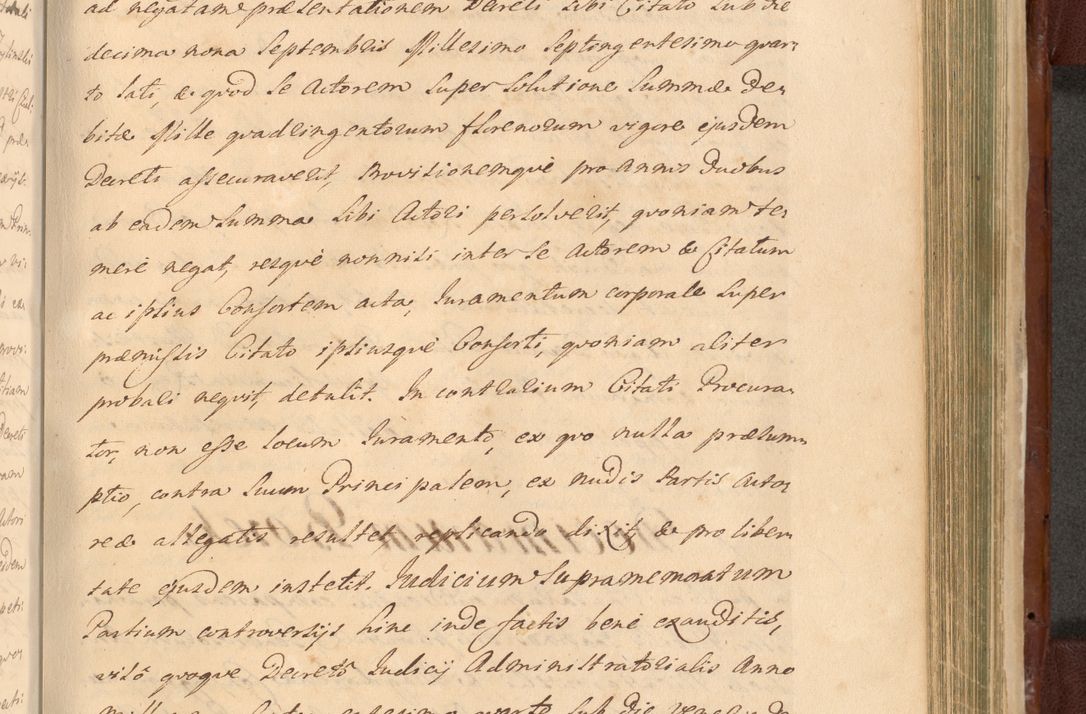 ad negatam præsentationem Decreti sibi Citato sub die
decima nona Septembris Millesimo Septingentesimo quar,
to lati, & quod se Actorem super solutione Summæ De,
bitæ Mille quadringentorum florenorum vigore ejusdem
Decreti assecuraverit, Provisionemquè pro Annis Duobus
ab eadem Summa sibi Actori persolverit, quoniam te,
merè negat, resquè nonnisi inter se Actorem & Citatum
ac ipsius Consortem acta, Iuramentum corporale super
præmissis Citato ipsiusquè Consorti, quoniam aliter
probari nequit, detulit. In contrarium Citati Procura,
tor, non esse locum Iuramento, ex quo nulla præsum,
ptio, contra suum Principalem, ex nudis Partis Acto,
reæ allegatis resultet, replicando dixit, & pro liber,
tate ejusdem institit. Iudicium Supramemoratum
Partium controversijs hinc inde factis benè exauditis,
visô quoque Decretô Iudicij Administratorialis Anno